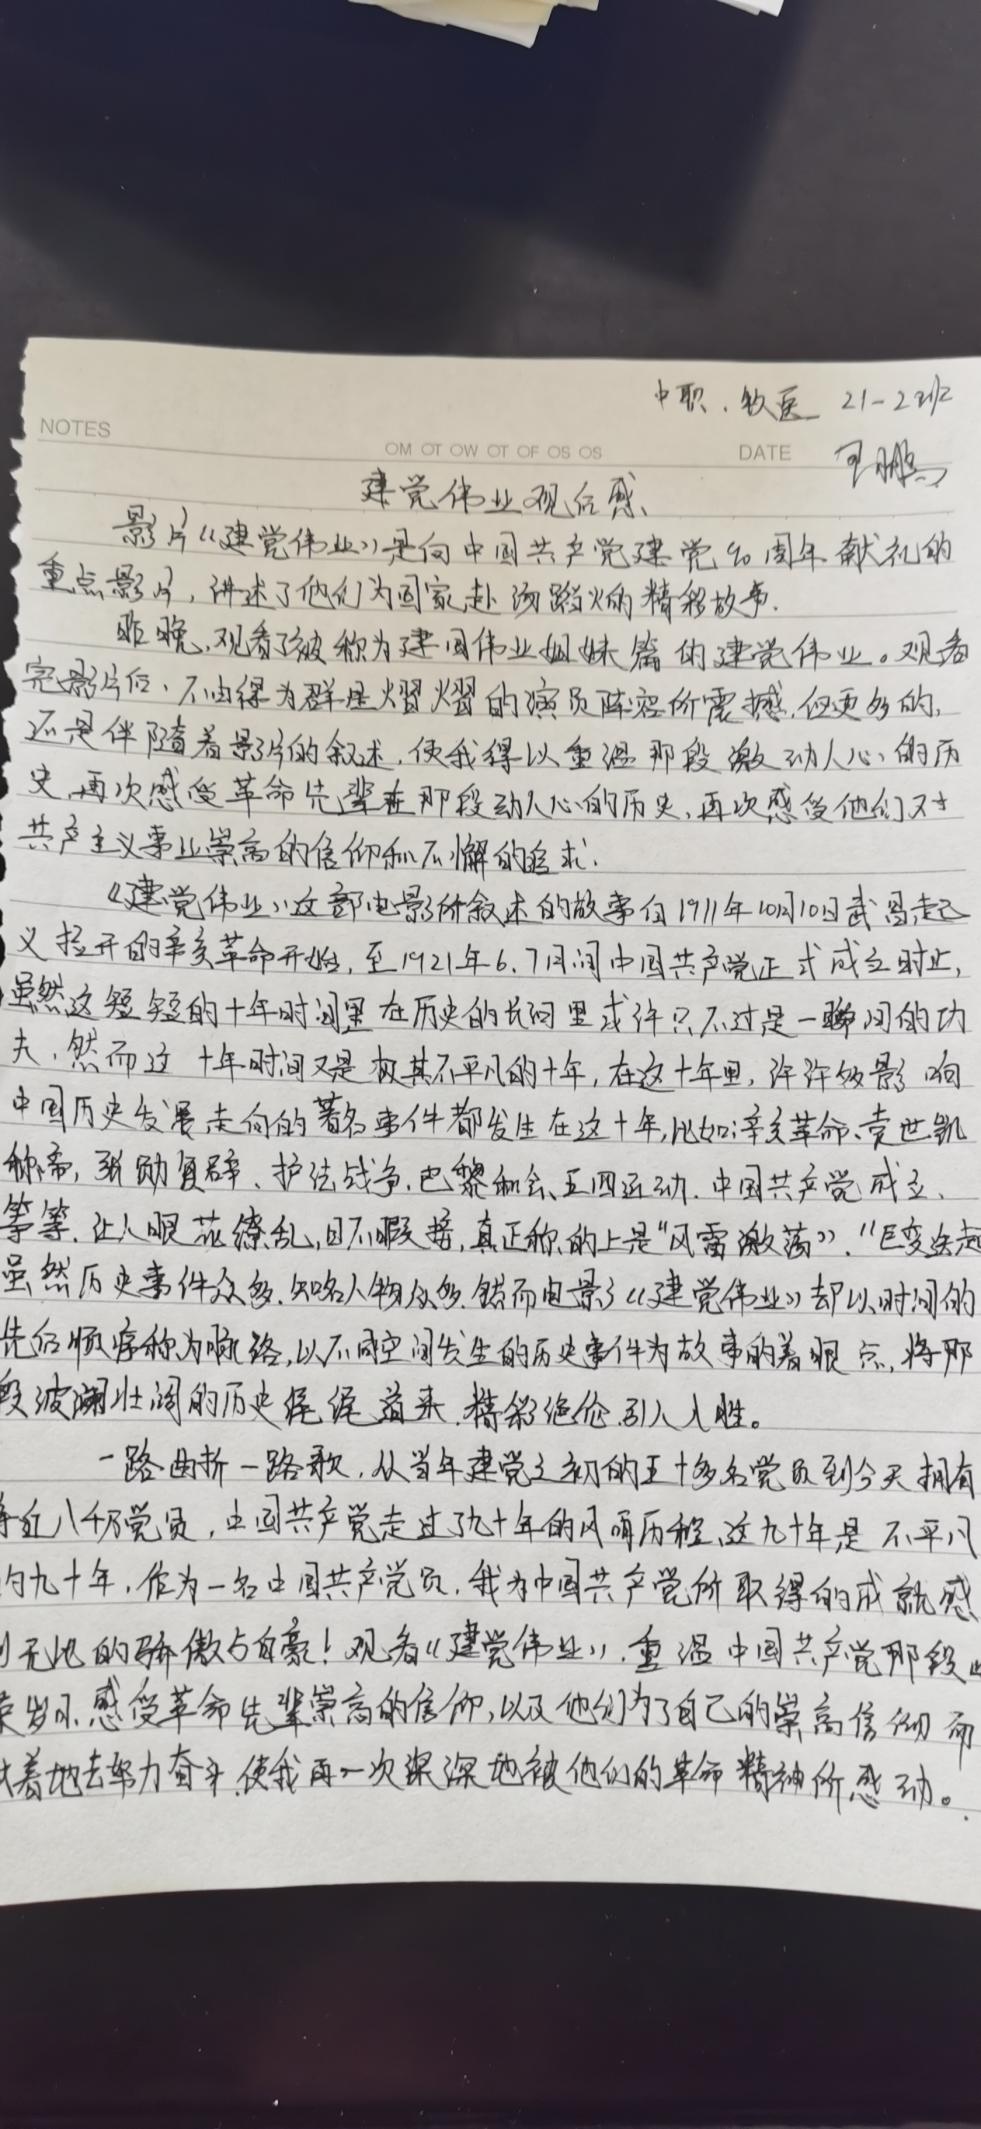 中职、牧医 21-2班
NOTES
OM OT OW OT OF OS OS
DATE
王鹏
建党伟业观后感
影片《建党伟业》是向中国共产党建党90周年献礼的
重点影片，讲述了他们为国家赴汤蹈火的精彩故事.
昨晚，观看了被称为建国伟业姐妹篇的建党伟业。观看
完影片后，不由得为群星熠熠的演员阵容所震撼，但更多的，
还是伴随着影片的叙述，使我得以重温那段激动人心的历
史，再次感受革命先辈在那段动人心的历史，再次感受他们对
共产主义事业崇高的信仰和不懈的追求.
《建党伟业》这部电影所叙述的故事自1911年10月10日武昌起
义拉开的辛亥革命开始，至1921年6、7月间中国共产党正式成立时止，
虽然这短短的十年时间里在历史的长河里或许只不过是一瞬间的功
夫，然而这十年时间又是极其不平凡的十年，在这十年里，许许多影响
中国历史发展走向的著名事件都发生在这十年，比如：辛亥革命、袁世凯
称帝，张勋复辟、护法战争、巴黎和会、五四运动、中国共产党成立、
等等，让人眼花缭乱，目不暇接，真正称的上是“风雷激荡”、“巨变迭起
虽然历史事件众多，知名人物众多，然而电影《建党伟业》却以时间的
先后顺序称为脉络，以不同空间发生的历史事件为故事的着眼点，将那
段波澜壮阔的历史娓娓道来，精彩绝伦，引人入胜。
一路曲折一路歌，从当年建党之初的五十多名党员到今天拥有
将近八千万党员，中国共产党走过了九十年的风雨历程，这九十年是不平凡
的九十年，作为一名中国共产党员，我为中国共产党所取得的成就感
到无比的骄傲与自豪！观看《建党伟业》，重温中国共产党那段
岁月，感受革命先辈崇高的信仰，以及他们为了自己的崇高信仰而
执着地去努力奋斗，使我再一次深深地被他们的革命精神所感动。